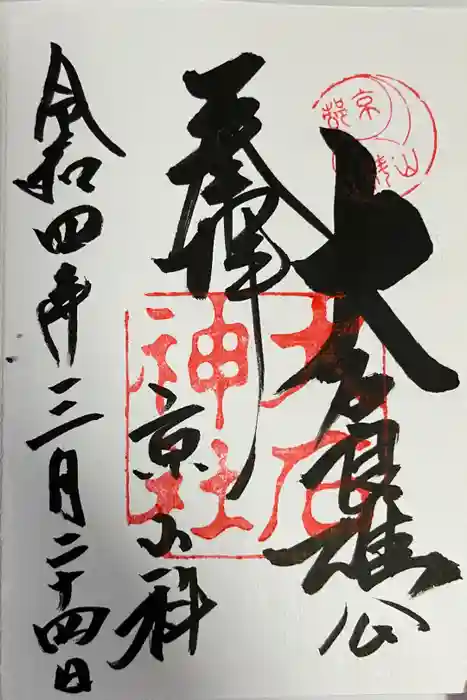 大石良雄公
奉拝
京山科
大石神社
令和四年三月二十四日